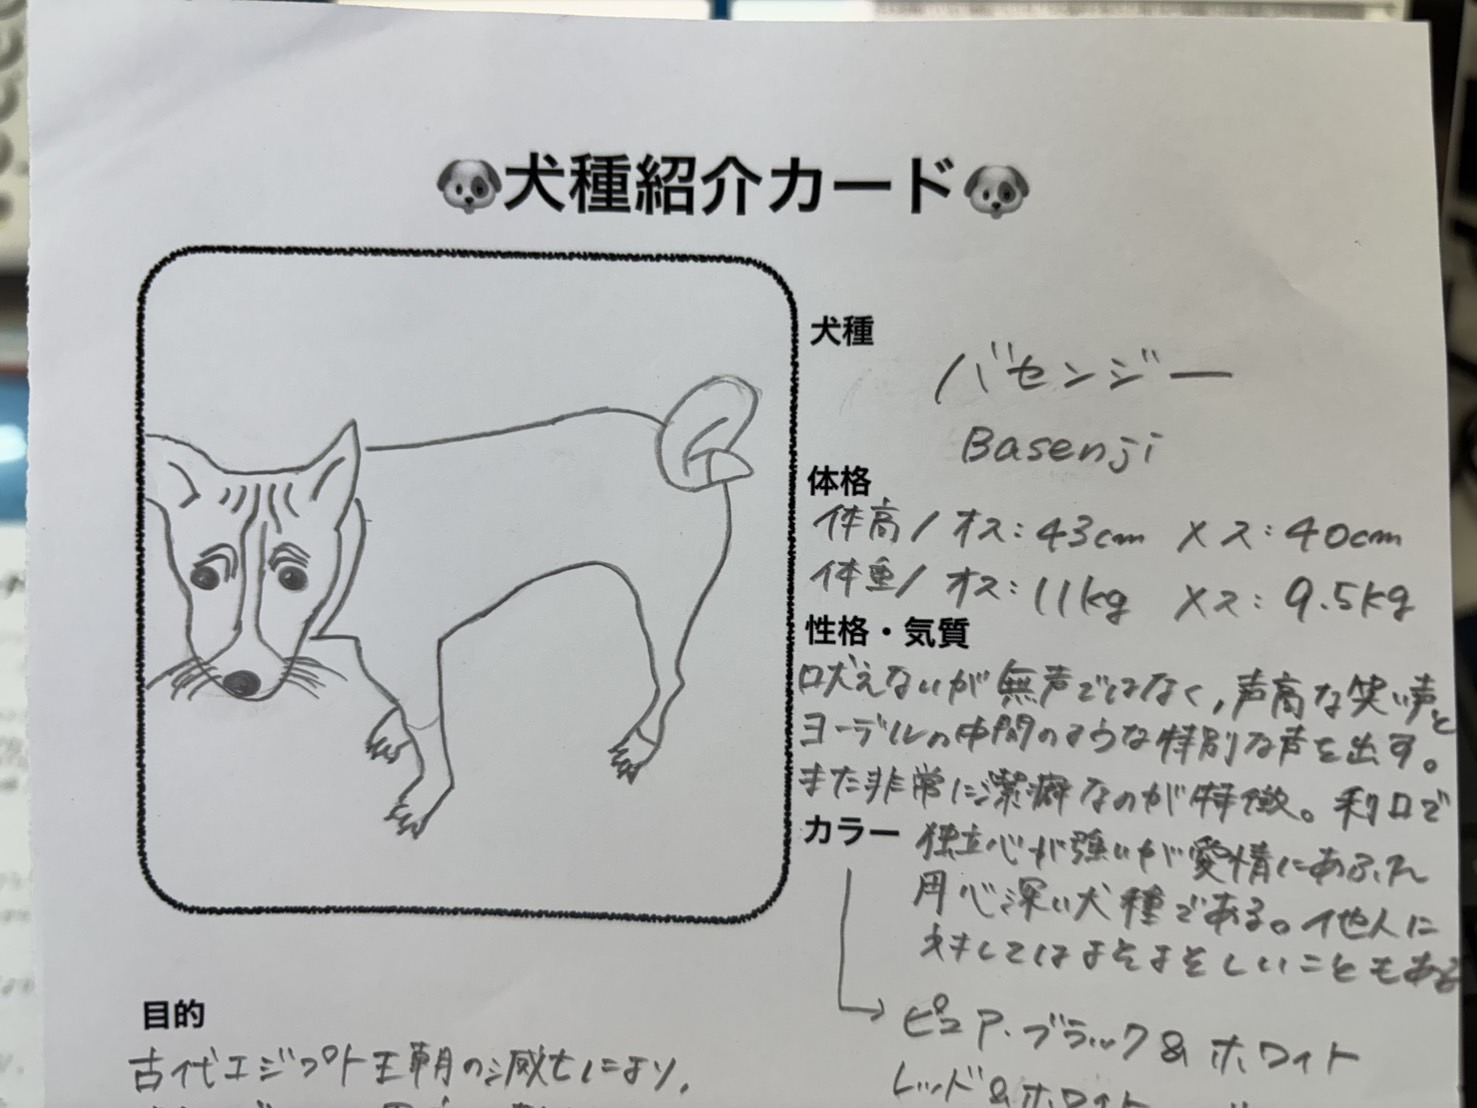 犬種紹介カード
犬種
バセンジー
Basenji
体格
体高/オス:43cm メス:40cm
体重/オス:11kg メス:9.5kg
性格・気質
吠えないが無声ではなく,声高な笑い声と
ヨーデルの中間のような特別な声を出す。
また非常に潔癖なのが特徴。利口で
カラー
独立心が強いが愛情にあふれ
用心深い犬種である。他人に
対してはよそよそしいこともある
ピュア・ブラック&ホワイト
レッド&ホワイト
目的
古代エジプト王朝の滅亡により,